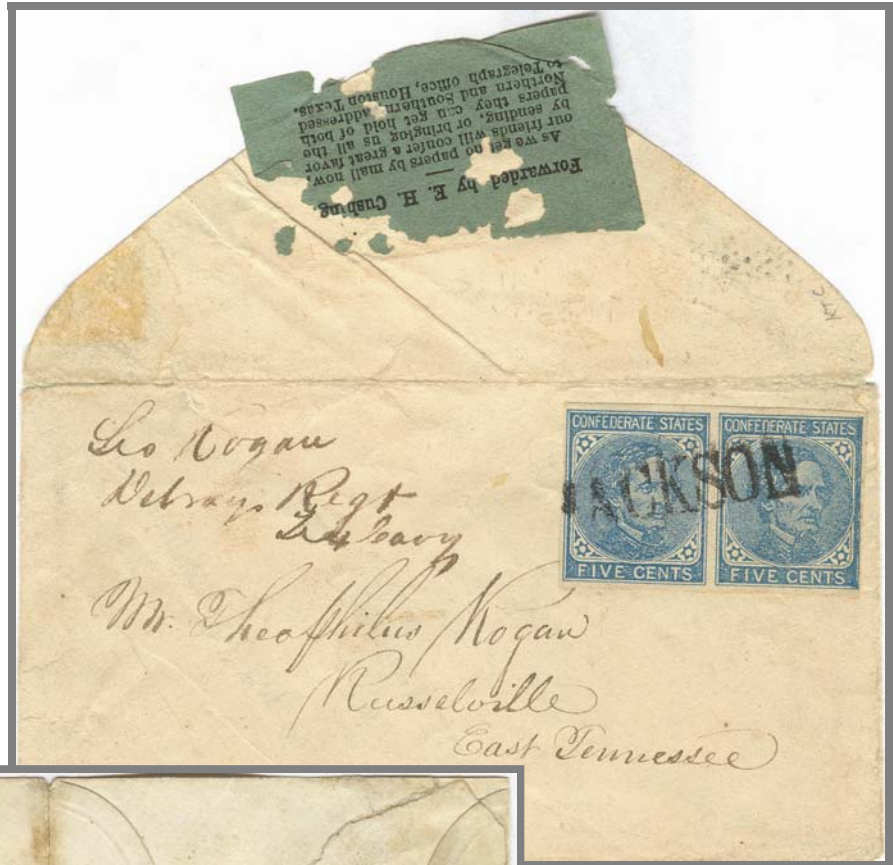 Forwarded by E. H. Cushing.
As we get no papers by mail now,
our friends will confer a great favor
by sending, or bringing us all the
papers they can get hold of both
Northern and Southern, addressed
to Telegraph office, Houston Texas.
KTC
CONFEDERATE STATES
CONFEDERATE STATES
JACKSON
FIVE CENTS
FIVE CENTS
Regt
Mr. Theophilus Rogan
Russelville
East Tennessee